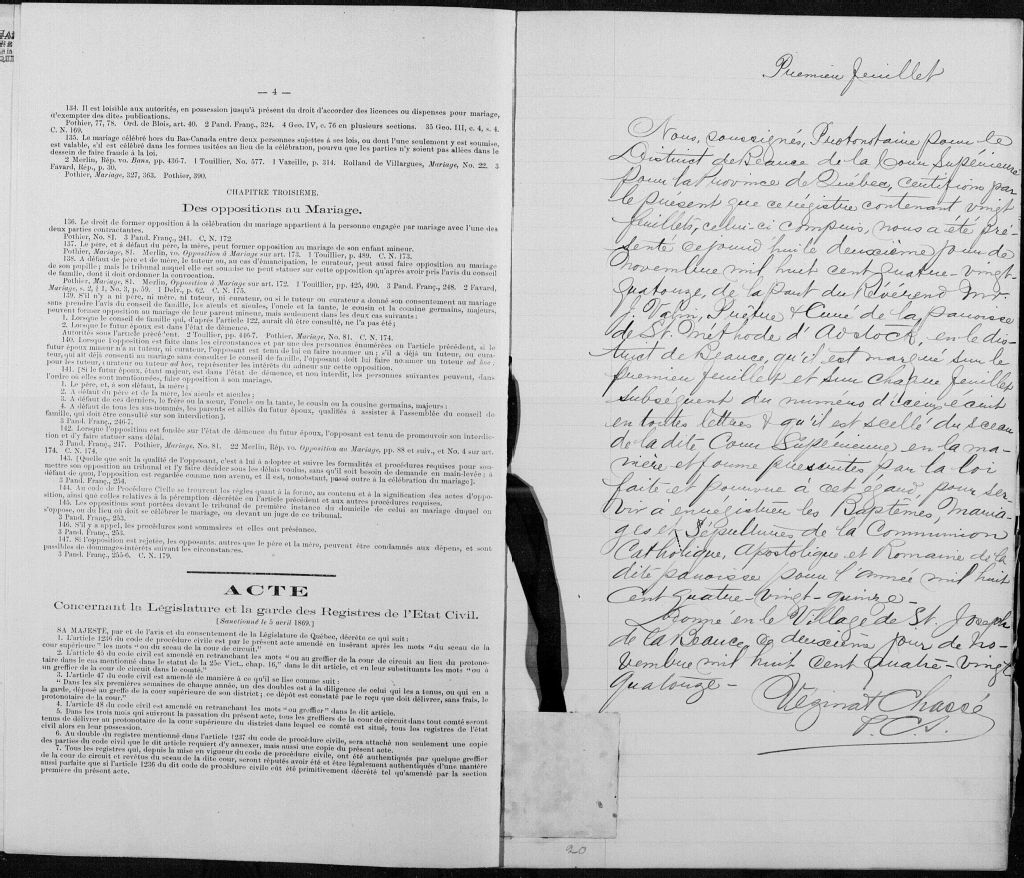 — 4 —
134. Il est loisible aux autorités, en possession jusqu'à présent du droit d'accorder des licences ou dispenses pour mariage,
d'exempter des dites publications.
Pothier, 77, 78. Ord. de Blois, art. 40. 2 Pand. Franç., 324. 4 Geo. IV, c. 76 en plusieurs sections. 35 Geo. III, c. 4, s. 4.
C. N. 169.
135. Le mariage célébré hors du Bas-Canada entre deux personnes sujettes à ses lois, ou dont l'une seulement y est soumise,
est valable, s'il est célébré dans les formes usitées au lieu de la célébration, pourvu que les parties n'y soient pas allées dans le
dessein de faire fraude à la loi.
2 Merlin, Rép. vo. Bans, pp. 436-7. 1 Touillier, No. 577. 1 Vazeille, p. 314. Rolland de Villargues, Mariage, No. 22. 3
Favard, Rép., p. 30.
Pothier, Mariage, 327, 363. Pothier, 390.
CHAPITRE TROISIÈME.
Des oppositions au Mariage.
136. Le droit de former opposition à la célébration du mariage appartient à la personne engagée par mariage avec l'une des
deux parties contractantes.
Pothier, No. 81. 3 Pand. Franç., 241. C. N. 172.
137. Le père, et à défaut du père, la mère, peut former opposition au mariage de son enfant mineur.
Pothier, Mariage, 81. Merlin, vo. Opposition à Mariage sur art. 173. 1 Touillier, p. 489. C. N. 173.
138. A défaut de père et de mère, le tuteur ou, au cas d'émancipation, le curateur, peut aussi faire opposition au mariage
de son pupille; mais le tribunal auquel elle est soumise ne peut statuer sur cette opposition qu'après avoir pris l'avis du conseil
de famille, dont il doit ordonner la convocation.
Pothier, Mariage, 81. Merlin, Opposition à Mariage sur art. 172. 1 Touillier, pp. 425, 490. 3 Pand. Franç., 248. 2 Favard,
Mariage, s. 2, § 1, No. 3, p. 59. 1 Delv., p. 62. C. N. 175.
139. S'il n'y a ni père, ni mère, ni tuteur, ni curateur, ou si le tuteur ou curateur a donné son consentement au mariage
sans prendre l'avis du conseil de famille, les aïeuls et aïeules, l'oncle et la tante, le cousin et la cousine germains, majeurs,
peuvent former opposition au mariage de leur parent mineur, mais seulement dans les deux cas suivants:
1. Lorsque le conseil de famille qui, d'après l'article 122, aurait dû être consulté, ne l'a pas été;
2. Lorsque le futur époux est dans l'état de démence.
Autorités sous l'article précédent. 2 Touillier, pp. 446-7. Pothier, Mariage, No. 81. C. N. 174.
140. Lorsque l'opposition est faite dans les circonstances et par une des personnes énumérées en l'article précédent, si le
futur époux mineur n'a ni tuteur, ni curateur, l'opposant est tenu de lui en faire nommer un; s'il a déjà un tuteur, ou cura-
teur, qui ait déjà consenti au mariage sans consulter le conseil de famille, l'opposant doit lui faire nommer un tuteur ad hoc;
pour les tuteur, curateur ou tuteur ad hoc, représenter les intérêts du mineur sur cette opposition.
141. [Si le futur époux, étant majeur, est dans l'état de démence, et non interdit, les personnes suivantes peuvent, dans
l'ordre où elles sont mentionnées, faire opposition à son mariage.
1. Le père, et, à son défaut, la mère;
2. A défaut du père et de la mère, les aïeuls et aïeules;
3. A défaut de ces derniers, le frère ou la sœur, l'oncle ou la tante, le cousin ou la cousine germains, majeurs;
4. A défaut de tous les sus-nommés, les parents et alliés du futur époux, qualifiés à assister à l'assemblée du conseil de
famille, qui doit être consulté sur son interdiction].
3 Pand. Franç., 246-7.
142. Lorsque l'opposition est fondée sur l'état de démence du futur époux, l'opposant est tenu de promouvoir son interdic-
tion et d'y faire statuer sans délai.
3 Pand. Franç., 247. Pothier, Mariage, No. 81. 22 Merlin, Rép. vo. Opposition au Mariage, pp. 88 et suiv., et No. 4 sur art.
174. C. N. 174.
143. [Quelle que soit la qualité de l'opposant, c'est à lui à adopter et suivre les formalités et procédures requises pour sou-
mettre son opposition au tribunal et l'y faire décider sous les délais voulus, sans qu'il soit besoin de demande en main-levée; à
défaut de quoi, l'opposition est regardée comme non avenue, et il est, nonobstant, passé outre à la célébration du mariage].
3 Pand. Franç., 254.
144. Au Code de Procédure Civile se trouvent les règles quant à la forme, au contenu et à la signification des actes d'oppo-
sition, ainsi que celles relatives à la péremption décrétée en l'article précédent et aux autres procédures requises.
145. Les oppositions sont portées devant le tribunal de première instance du domicile de celui au mariage duquel on
s'oppose, ou du lieu où doit se célébrer le mariage, ou devant un juge de ce tribunal.
3 Pand. Franç., 253.
146. S'il y a appel, les procédures sont sommaires et elles ont préséance.
3 Pand. Franç., 253.
147. Si l'opposition est rejetée, les opposants, autres que le père et la mère, peuvent être condamnés aux dépens, et sont
passibles de dommages-intérêts suivant les circonstances.
3 Pand. Franç., 255-6. C. N. 179.
ACTE
Concernant la Législature et la garde des Registres de l'Etat Civil.
[Sanctionné le 5 avril 1869.]
SA MAJESTE, par et de l'avis et du consentement de la Législature de Québec, décrète ce qui suit:
1. L'article 1236 du code de procédure civile est par le présent acte amendé en insérant après les mots "du sceau de la
cour supérieure" les mots "ou du sceau de la cour de circuit."
2. L'article 45 du code civil est amendé en retranchant les mots "ou au greffier de la cour de circuit au lieu du protono-
taire dans le cas mentionné dans le statut de la 25e Vict., chap. 16," dans le dit article, et en leur substituants les mots "ou à
un greffier de la cour de circuit dans le comté."
3. L'article 47 du code civil est amendé de manière à ce qu'il se lise comme suit:
"Dans les six premières semaines de chaque année, un des doubles est à la diligence de celui qui les a tenus, ou qui en a
la garde, déposé au greffe de la cour supérieure de son district; ce dépôt est constaté par le reçu que doit délivrer, sans frais, le
protonotaire de la cour."
4. L'article 48 du code civil est amendé en retranchant les mots "ou greffier" dans le dit article.
5. Dans les trois mois qui suivront la passation du présent acte, tous les greffiers de la cour de circuit dans tout comté seront
tenus de délivrer au protonotaire de la cour supérieure du district dans lequel ce comté est situé, tous les registres de l'état
civil alors en leur possession.
6. Au double du registre mentionné dans l'article 1237 du code de procédure civile, sera attaché non seulement une copie
des parties du code civil que le dit article requiert d'y annexer, mais aussi une copie du présent acte.
7. Tous les registres qui, depuis la mise en vigueur du code de procédure civile, ont été authentiqués par quelque greffier
de la cour de circuit et revêtus du sceau de la dite cour, seront réputés avoir été et être légalement authentiqués d'une manière
aussi parfaite que si l'article 1236 du dit code de procédure civile eût été primitivement décrété tel qu'amendé par la section
première du présent acte.
Premier feuillet
Nous, soussigné, Protonotaire pour le
District de Beauce de la Cour Supérieure
pour la Province de Québec, certifions par
le présent que ce régistre contenant vingt
feuillets, celui-ci compris, nous a été pré-
senté ce jourd'hui le deuxième jour de
Novembre mil huit cent quatre-vingt-
quatorze, de la part du Révérend Mr.
J. Vahn, Prêtre & Curé de la paroisse
de St. Méthode d'Adstock, en le dis-
trict de Beauce, qu'il est marqué sur le
premier feuillet et sur chaque feuillet
subséquent du numéro d'iceux, écrit
en toutes lettres & qu'il est scellé du sceau
de la dite Cour Supérieure en la ma-
nière et forme prescrites par la loi
faite et pourvue à cet égard, pour ser-
vir à enrégistrer les Baptêmes, Maria-
ges et Sépultures de la Communion
Catholique, Apostolique et Romaine de la
dite paroisse pour l'année mil huit
cent quatre-vingt-quinze.
Donné en le Village de St. Joseph
de la Beauce, ce deuxième jour de No-
vembre mil huit cent quatre-vingt
quatorze-
Vézina & Chassé
P. C. S.
20